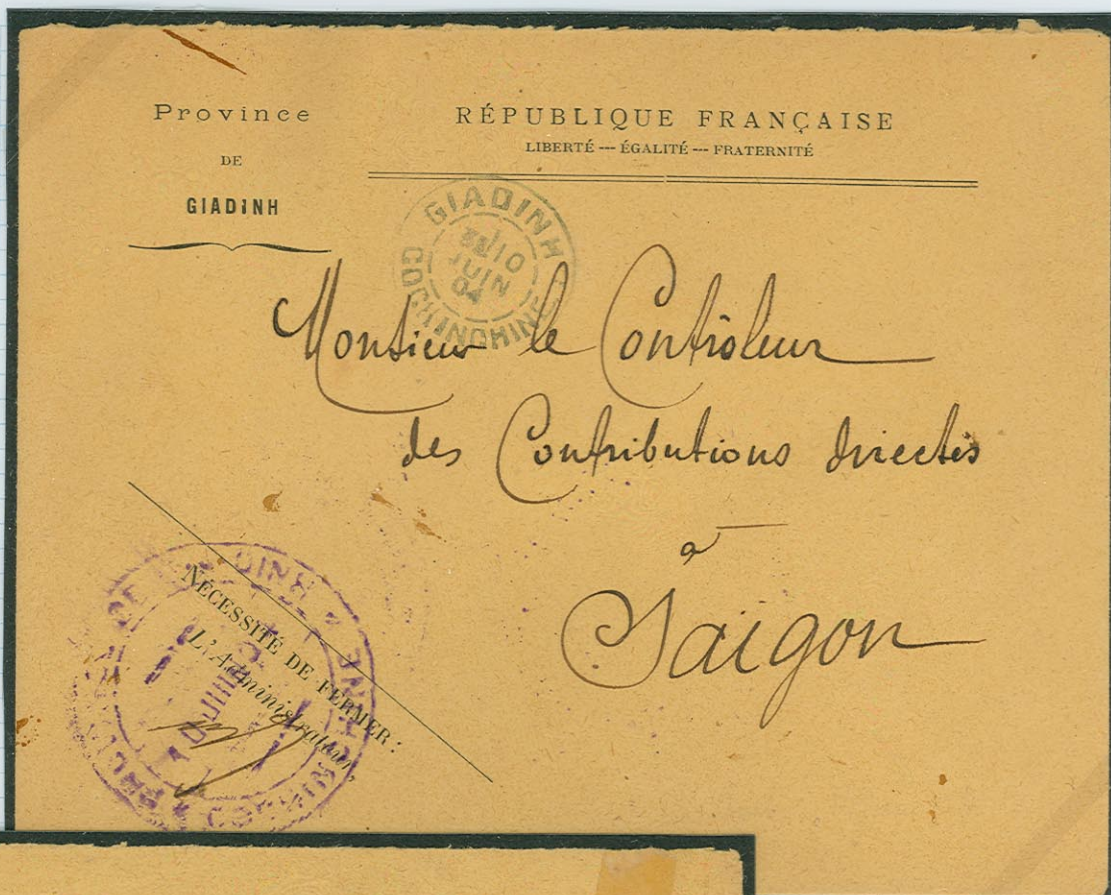 Province
DE
GIADINH
RÉPUBLIQUE FRANÇAISE
LIBERTÉ --- ÉGALITÉ --- FRATERNITÉ
GIADINH
10
JUIN
04
COCHINCHINE
Monsieur le Contrôleur
des Contributions directes
à
Saïgon
NÉCESSITÉ DE FERMER :
L'Administrateur,